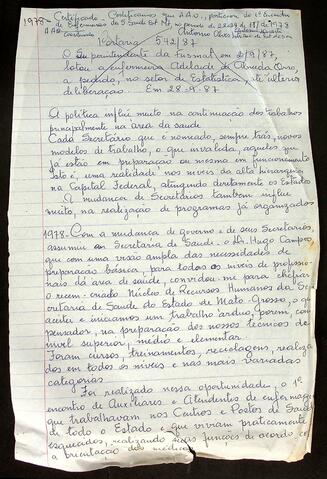 1978 - Certificado - Certificamos que A.A.O., participou do 1º Encontro
de Enfermeiros da S. Saúde Est MT, no período de 22 a 24 de 11 de 1978
A.A.O. Antonio Alves
Portaria 542/87
O Superintendente da Fusmat, em 2/9/87,
lotou a enfermeira Adelaide de Almeida Orro,
a pedido, no setor de Estatística, até ulterior
deliberação. Em 28-9-87
A política influi muito na continuação dos trabalhos
principalmente na área da saúde.
Cada Secretário que é nomeado, sempre trás, novos
modelos de trabalho, o que invalida, aqueles que
já estão em preparação ou mesmo em funcionamento
isto é, uma realidade nos níveis da alta hierarquia
na Capital Federal, atingindo diretamente os Estados
A mudança de Secretários também influe
muito, na realização de programas já organizados
1978 - Com a mudança de governo e de seus Secretários,
assumiu a Secretaria de Saúde - o Dr. Hugo Campos,
que com uma visão ampla das necessidades de
preparação básica, para todos os níveis de profissio-
nais da área de saúde, convidou-me para chefiar
o recem-criado Núcleo de Recursos Humanos da Se-
cretaria de Saúde do Estado de Mato-Grosso, o que
aceitei e iniciamos um trabalho árduo, porém, com-
pensador, na preparação dos nossos técnicos de
nível superior, médio e elementar.
Foram cursos, treinamentos, reciclagens, realiza
dos em todos os níveis e nas mais variadas
categorias
Foi realizado nessa oportunidade, o 1º
encontro de Auxiliares e Atendentes de enfermagem
que trabalhavam nos Centros e Postos de Saúde
de todo o Estado e que viviam praticamente
esquecidos, realizando suas funções de acordo, com
a orientação dos médicos